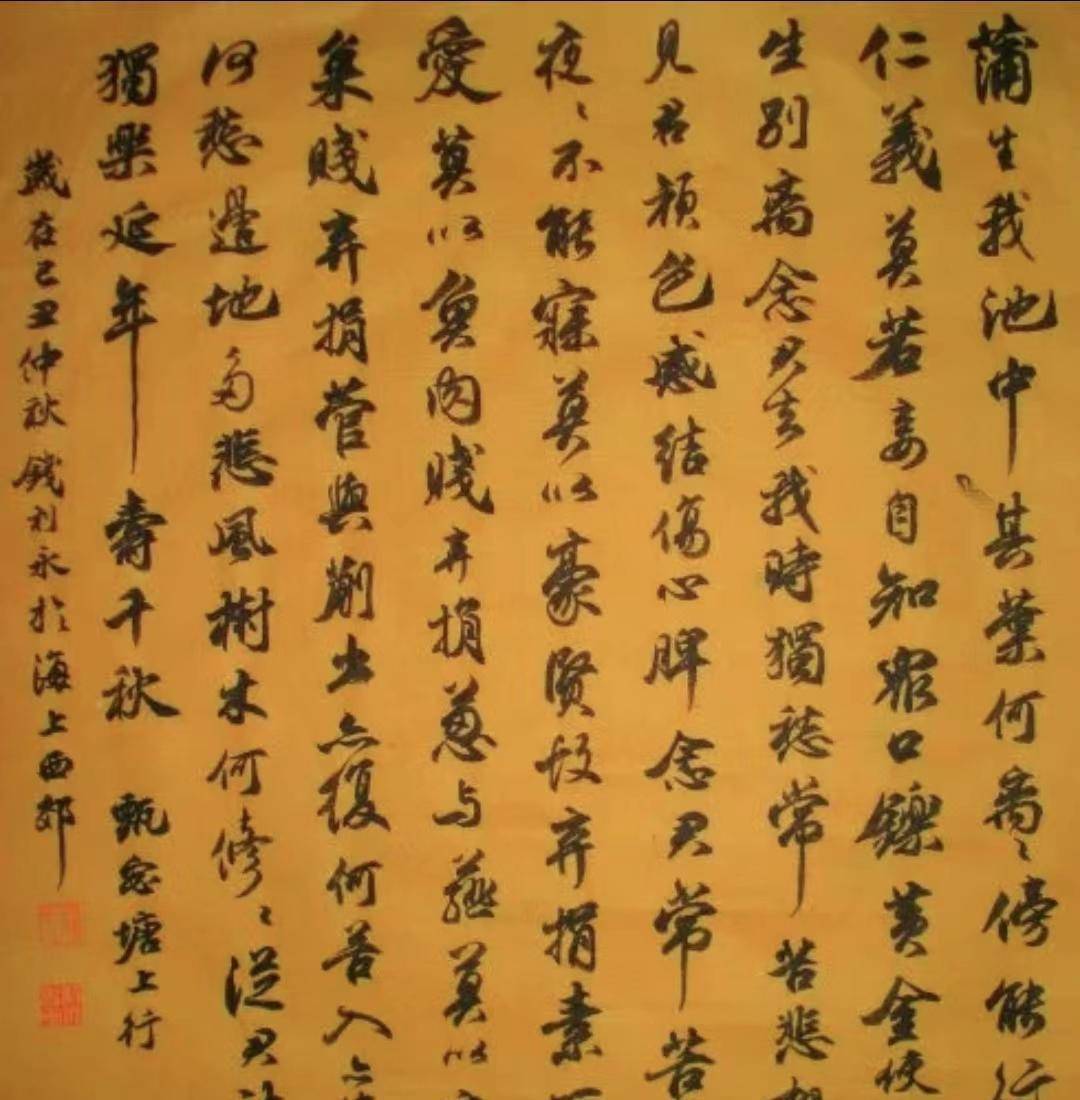 蒲生我池中其葉何离々傍能行
仁義莫若妾自知眾口鑠黃金使
生別离念君去我時獨愁常苦悲想
見君顏色感結傷心脾念君常苦
夜々不能寐莫以豪賢故弃捐素
愛莫以魚肉賤弃捐蔥与薤莫以
枲賤弃捐菅與蒯出亦復何苦入亦
何愁邊地多悲風樹木何修々從君
獨樂延年壽千秋 甄宓塘上行
歲在己丑仲秋錢利永於海上西郊